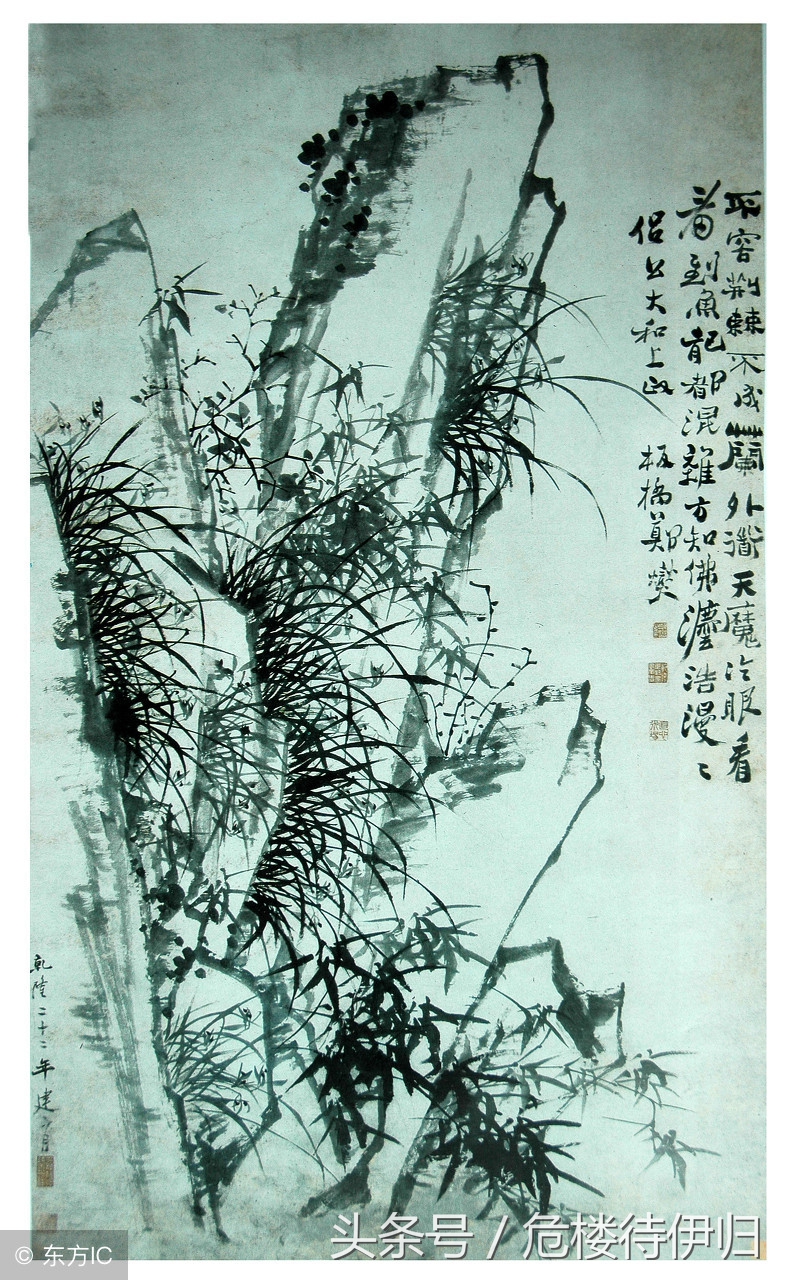 不容荆棘不成蘭外道天魔冷眼看
看到魚龍都混雜方知佛灋浩漫〻
侣公大和上政
板橋鄭燮
乾隆二十二年建月
© 东方IC
头条号 / 危楼待伊归